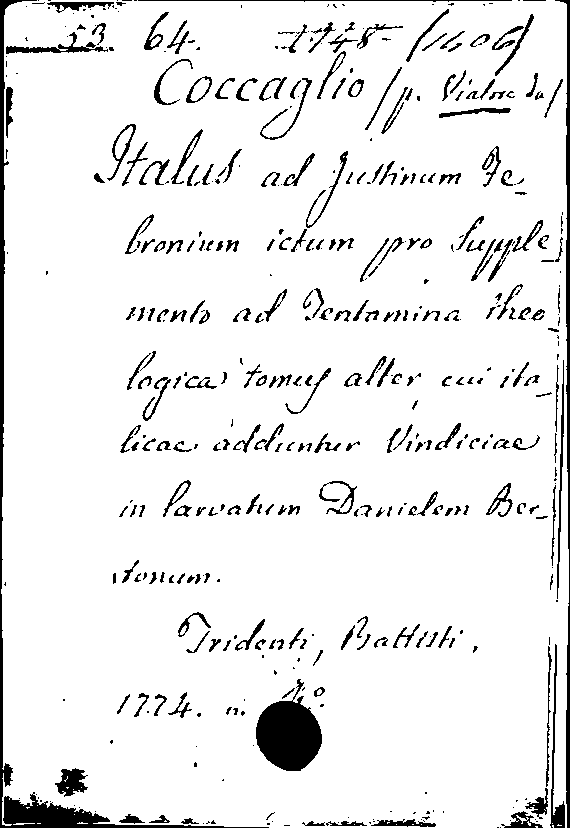 53 64. 1748 (1606)
Coccaglio (p. Viatore da)
Italus ad Justinum Fe-
bronium ictum pro Supple-
mento ad Tentamina theo-
logica tomus alter cui ita-
licae adduntur Vindiciae
in larvatum Danielem Ber-
tonum.
Tridenti, Battisti,
1774. in 4°.